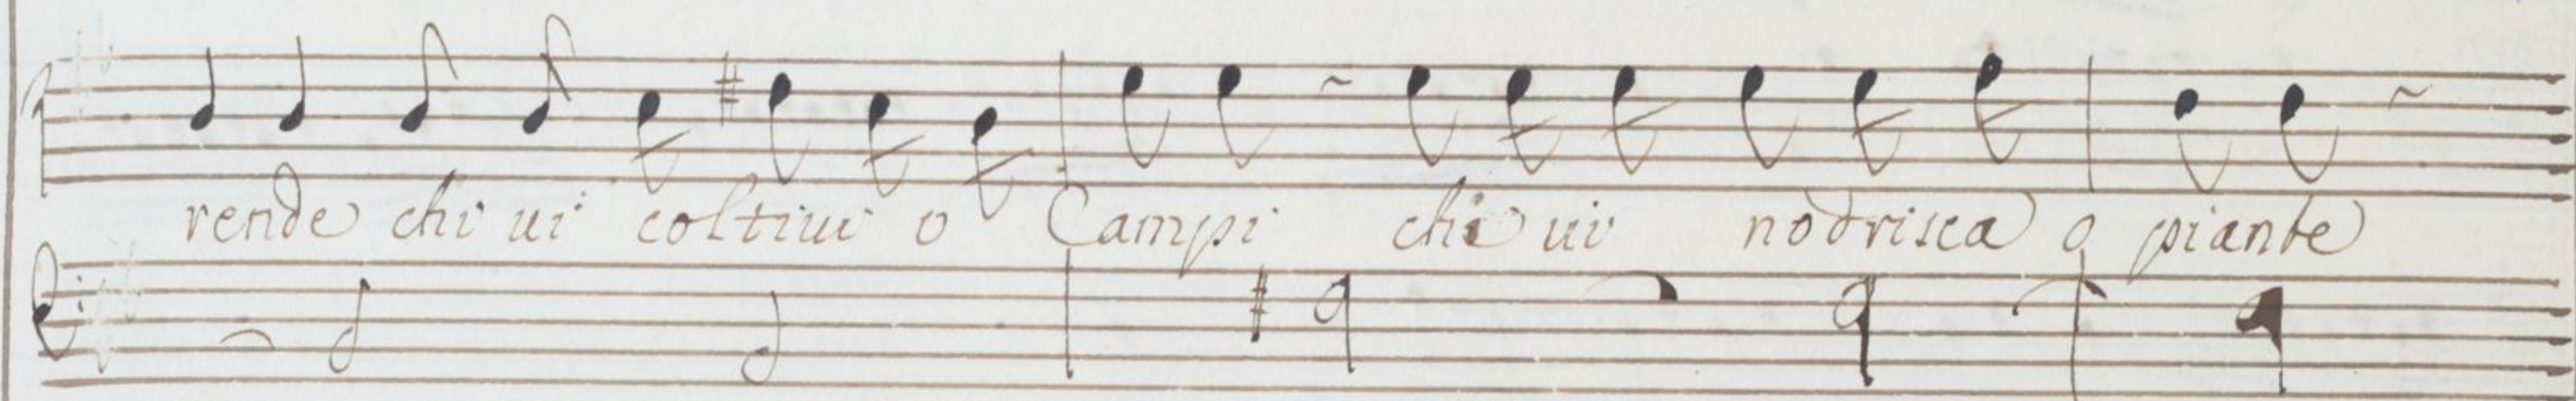 rende chi ui coltiui o Campi chi ui nodrisca o piante